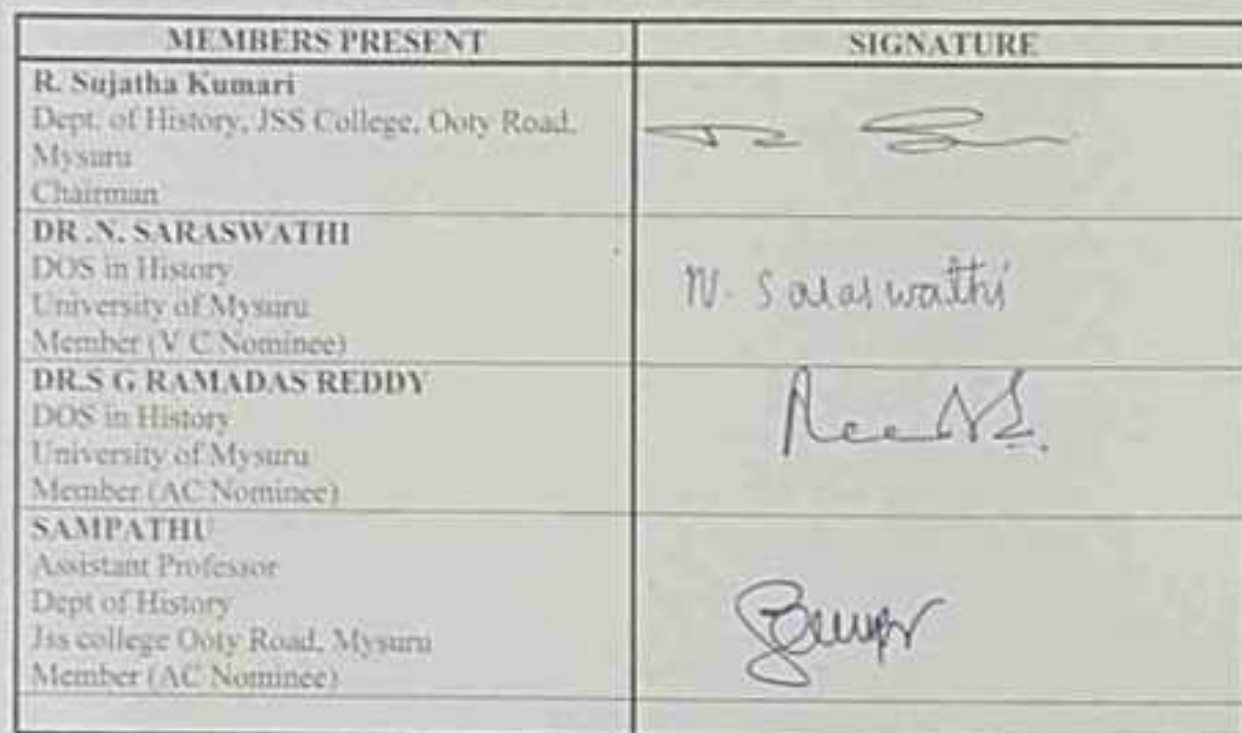 MEMBERS PRESENT
SIGNATURE
R. Sujatha Kumari
Dept. of History, JSS College, Ooty Road,
Mysuru
Chairman
DR .N. SARASWATHI
DOS in History
University of Mysuru
Member (V C Nominee)
N. Saraswathi
DR.S G RAMADAS REDDY
DOS in History
University of Mysuru
Member (AC Nominee)
SAMPATHU
Assistant Professor
Dept of History
Jss college Ooty Road, Mysuru
Member (AC Nominee)